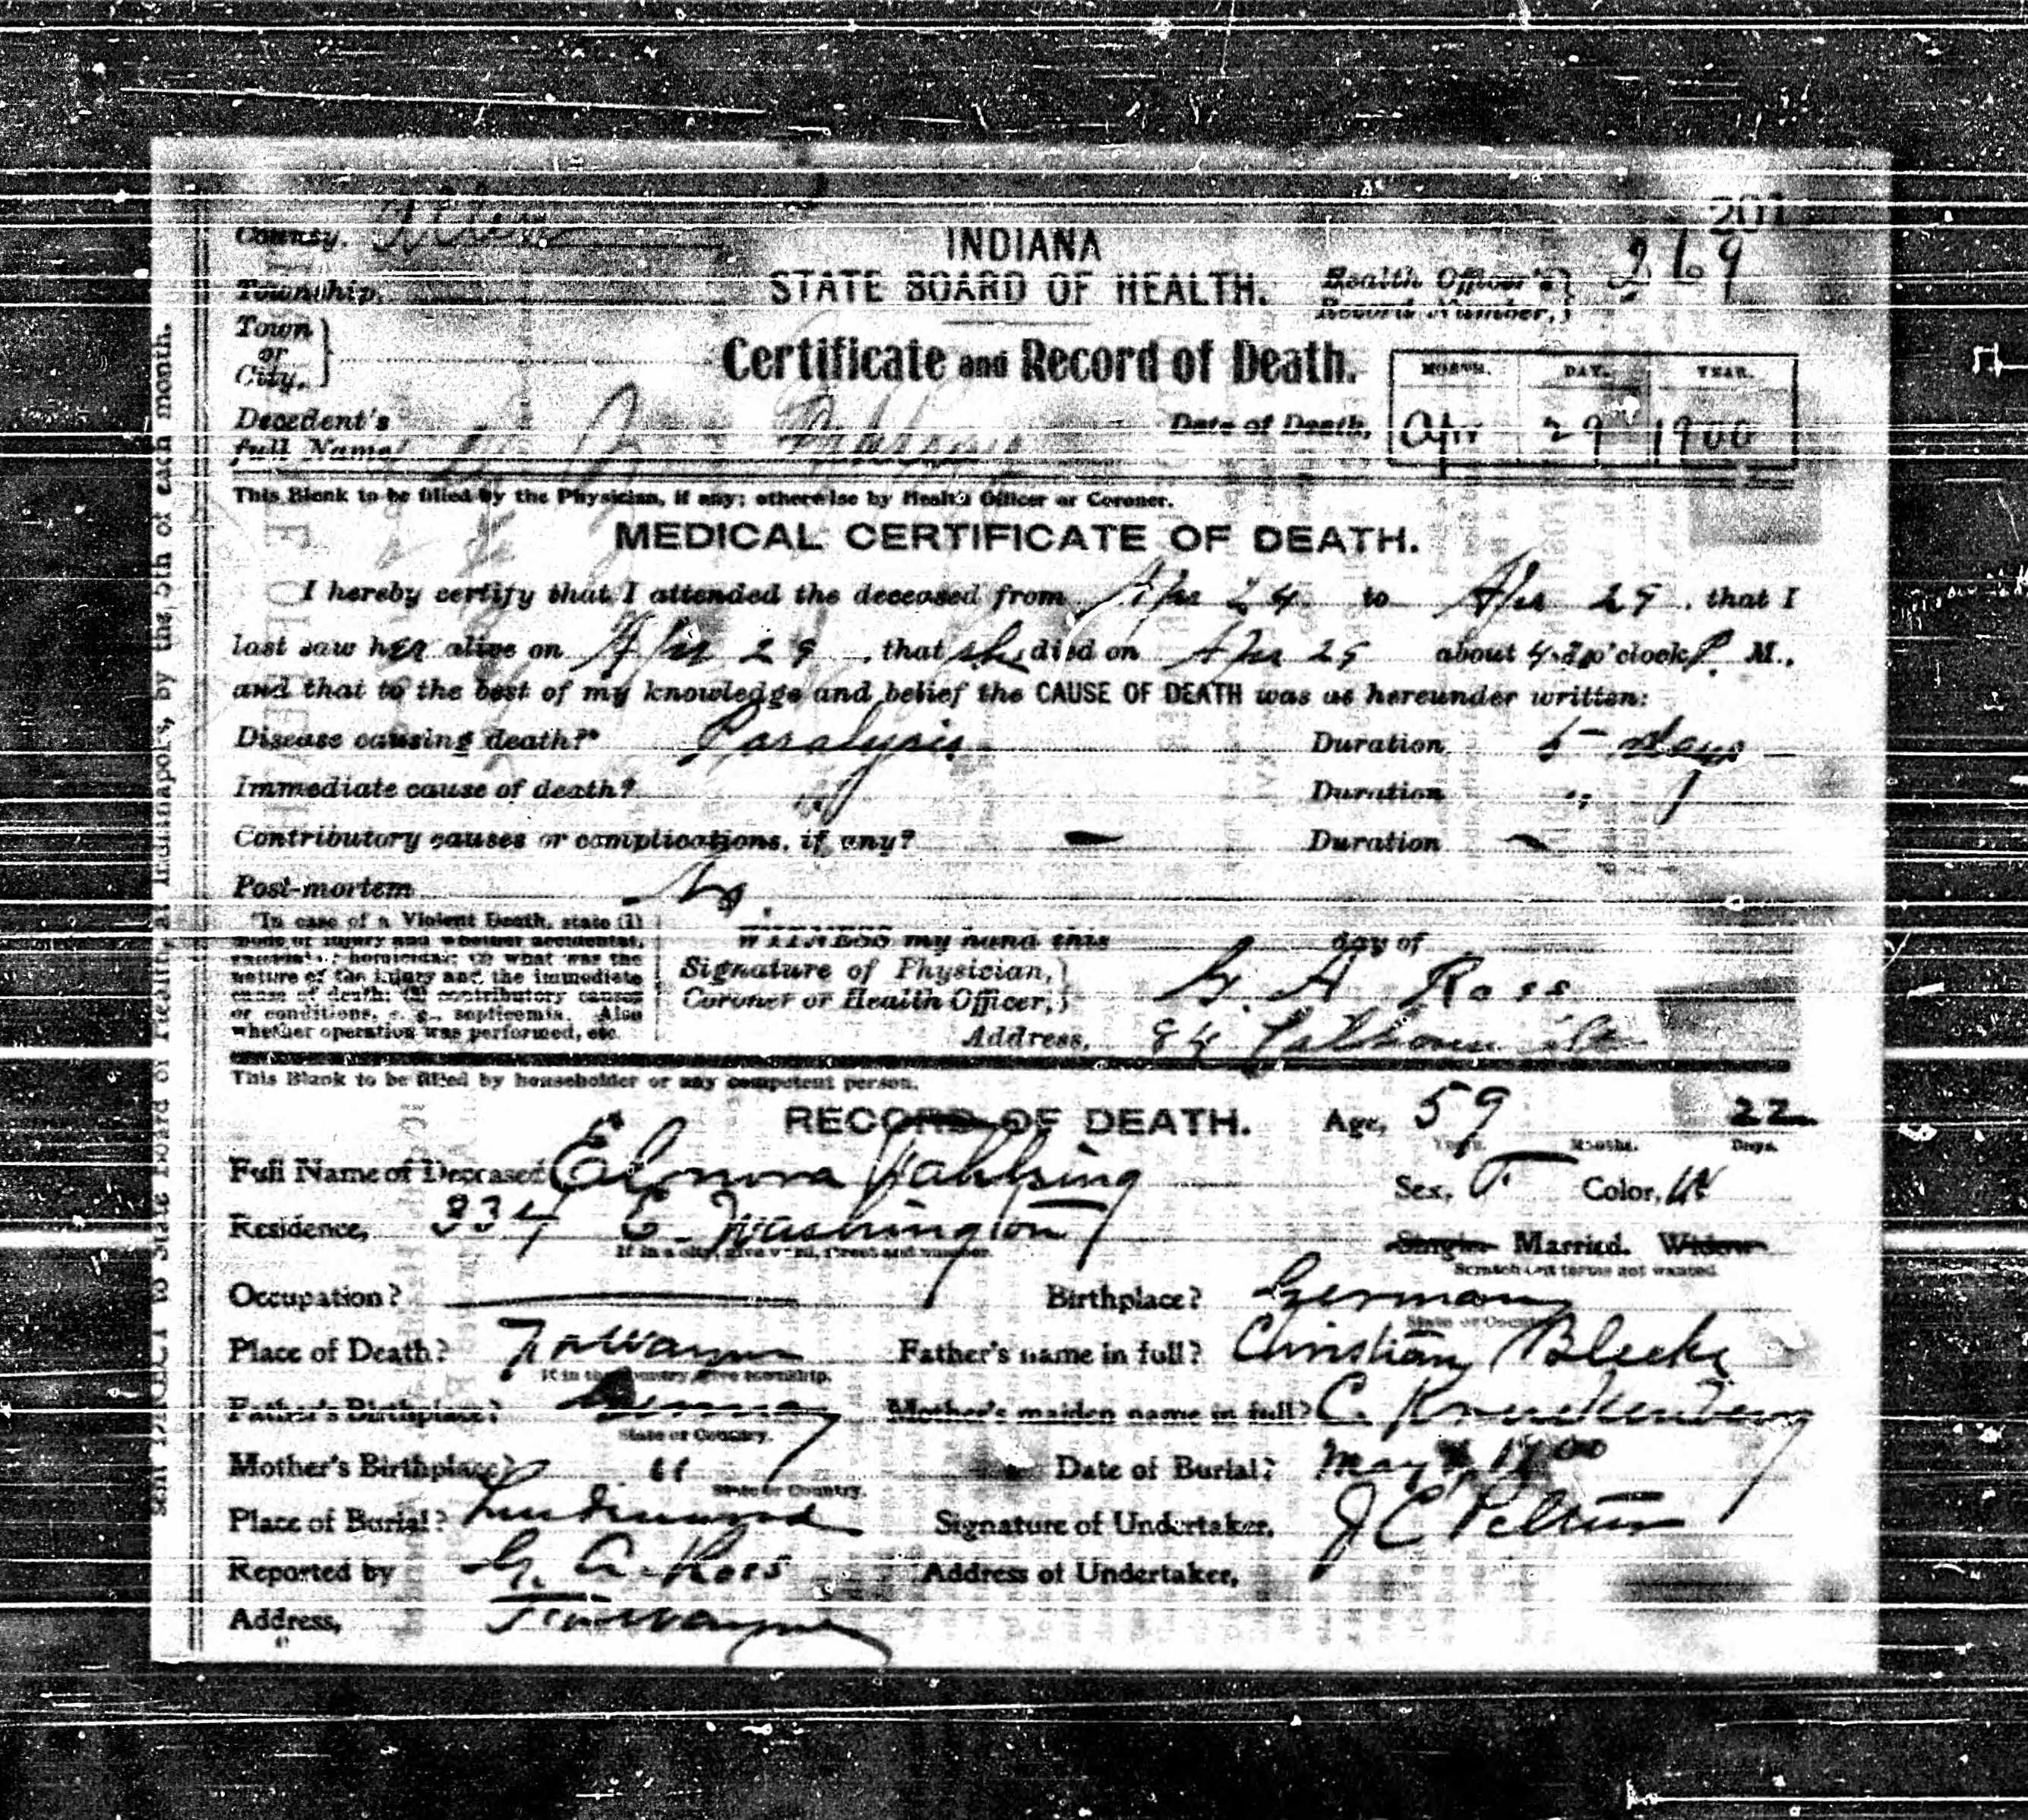 201
County, Allen
INDIANA
269
Township,
STATE BOARD OF HEALTH.
Health Officer's
Record Number,
Town
or
City,
Certificate and Record of Death.
MONTH. DAY. YEAR.
Decedent's
full Name
Date of Death, Apr 29 1900
This Blank to be filled by the Physician, if any; otherwise by Health Officer or Coroner.
MEDICAL CERTIFICATE OF DEATH.
I hereby certify that I attended the deceased from Apr 24 to Apr 29, that I
last saw her alive on Apr 29, that she died on Apr 29 about o'clock P. M.,
and that to the best of my knowledge and belief the CAUSE OF DEATH was as hereunder written:
Disease causing death?* Paralysis Duration 5 days
Immediate cause of death? " Duration "
Contributory causes or complications, if any? - Duration -
Post-mortem No
*In case of a Violent Death, state (1)
mode of injury and whether accidental,
suicidal or homicidal; (2) what was the
nature of the injury and the immediate
cause of death; (3) contributory causes
or conditions, e. g., septicemia. Also
whether operation was performed, etc.
WITNESS my hand this day of
Signature of Physician,
Coroner or Health Officer, G A Ross
Address, 84 Calhoun St
This Blank to be filled by householder or any competent person.
RECORD OF DEATH. Age, 59 22
Years. Months. Days.
Full Name of Deceased Elonora Vahlsing Sex, F Color, W
Residence, 334 E. Washington
If in a city, give ward, street and number.
Single. Married. Widow
Scratch out terms not wanted.
Occupation? Birthplace? Germany
State or Country.
Place of Death? Ft Wayne Father's name in full? Christian Bleeke
If in the country, give township.
Father's Birthplace? Germany Mother's maiden name in full? C.
State or Country.
Mother's Birthplace? " Date of Burial? May 1900
State or Country.
Place of Burial? Lindenwood Signature of Undertaker, J C Peltier
Reported by G. A. Ross Address of Undertaker,
Address, Ft Wayne
Sent DIRECT to State Board of Health, at Indianapolis, by the 5th of each month.